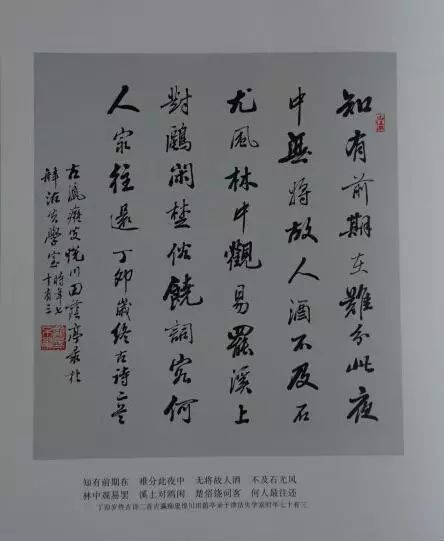 知有前期在難分此夜
中無將故人酒不及石
尤風林中觀易罷溪上
對鷗閑楚俗饒詞客何
人㝡往還 丁卯歲終古詩二首
古瀛癡叟悅川田蔭亭录於
津沽失學室時年七十有三
知有前期在 难分此夜中 无将故人酒 不及石尤风
林中观易罢 溪上对鸥闲 楚俗饶词客 何人最往还
丁卯岁终古诗二首古瀛痴叟悦川田荫亭录于津沽失学室时年七十有三